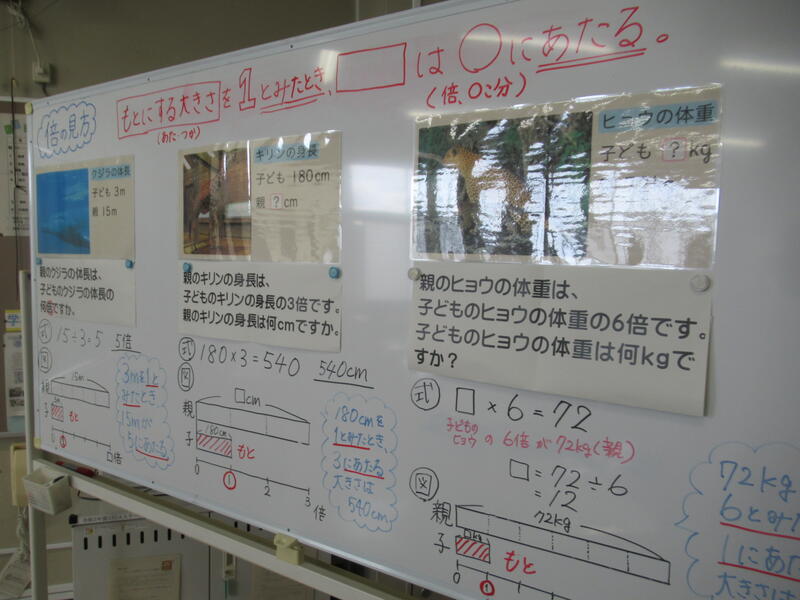 もとにする大きさを1とみたとき、□は○にあたる。
(あた・つか)
(倍、○こ分)
倍の見方
クジラの体長
子ども 3m
親 15m
親のクジラの体長は、
子どものクジラの体長の
何倍ですか。
式 15÷3=5 5倍
図
親
15m
子
3m
もと
0
1
□倍
3mを1と
みたとき
15mが
5にあたる
キリンの身長
子ども 180cm
親 ? cm
親のキリンの身長は、
子どものキリンの身長の3倍です。
親のキリンの身長は何cmですか。
式 180×3=540 540cm
図
□cm
親
子
180cm
もと
0 1 2 3 倍
180cmを
1とみたとき、
3にあたる
大きさは
540cm
ヒョウの体重
子ども ? kg
親のヒョウの体重は、
子どものヒョウの体重の6倍です。
子どものヒョウの体重は何kgで
すか?
式 □×6=72
子どもの
ヒョウ の 6倍 が 72kg(親)
□=72÷6
=12
図
親
72kg
子
□kg
もと
0 1
72kg
6とみた
1にあた
大きさは